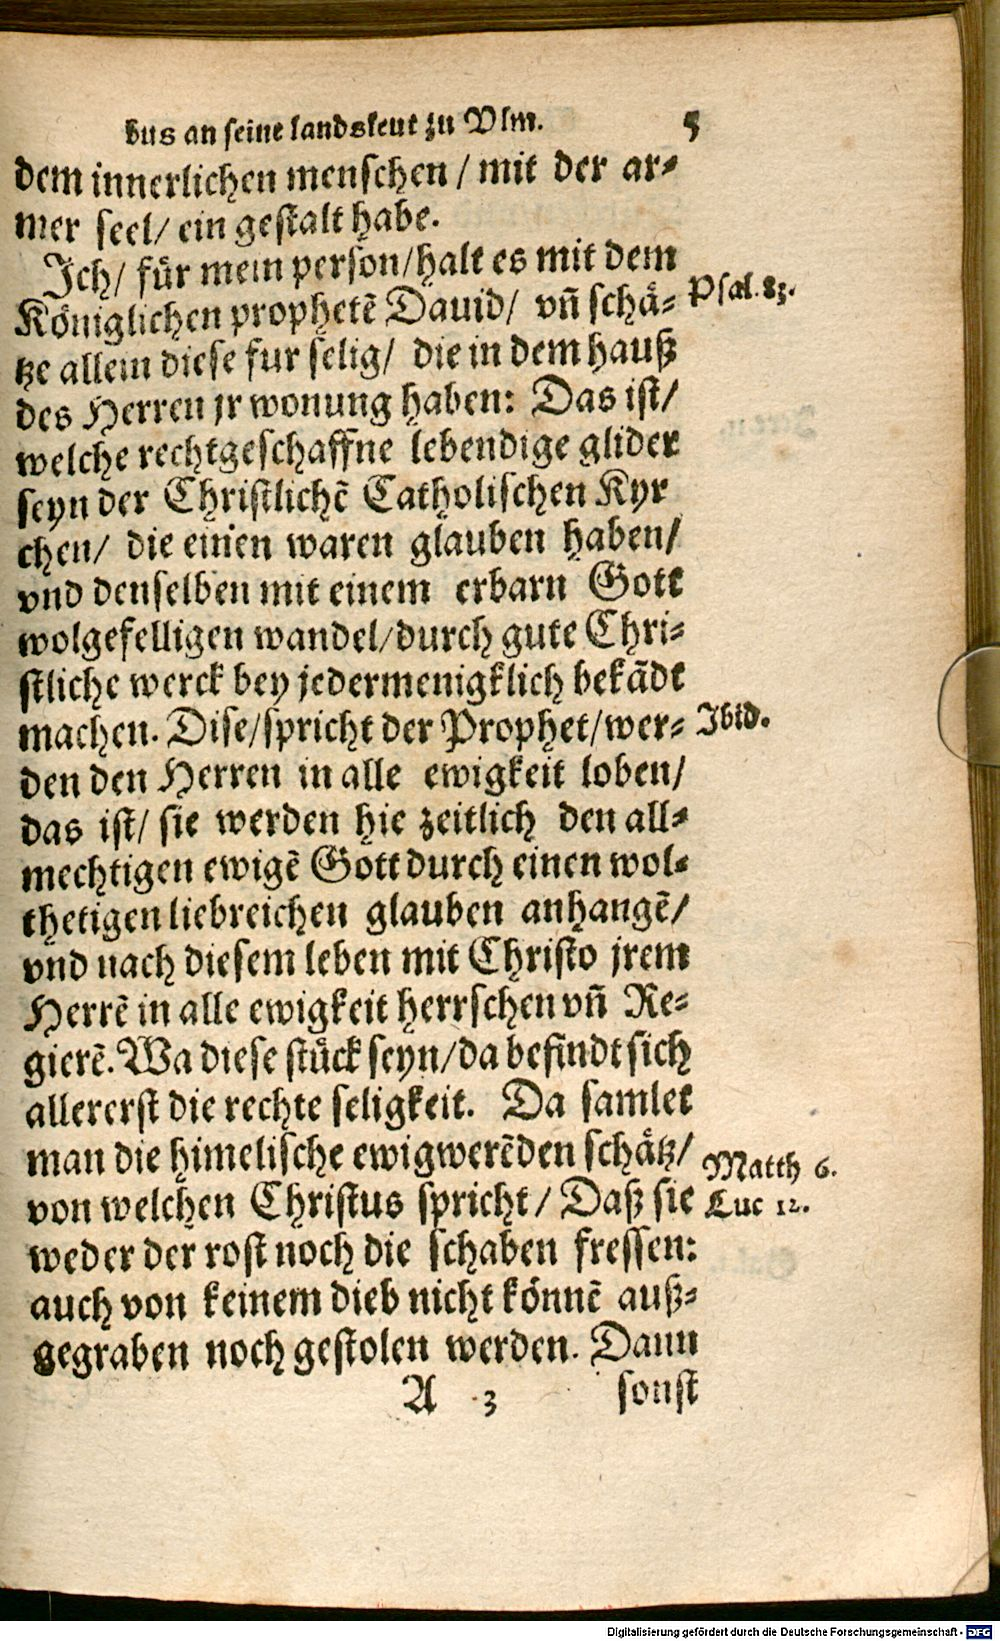 bus an seine landsleut zu Vlm. 5
dem innerlichen menschen / mit der ar-
mer seel / ein gestalt habe.
Ich / für mein person / halt es mit dem
Königlichen prophetē Dauid / vn̄ schä- Psal. 83.
tze allein diese fur selig / die in dem hauß
des Herren jr wonung haben: Das ist /
welche rechtgeschaffne lebendige glider
seyn der Christlichē Catholischen Kyr
chen / die einen waren glauben haben /
vnd denselben mit einem erbarn Gott
wolgefelligen wandel / durch gute Chri-
stliche werck bey jedermenigklich bekādt
machen. Dise / spricht der Prophet / wer- Ibid.
den den Herren in alle ewigkeit loben /
das ist / sie werden hie zeitlich den all-
mechtigen ewigē Gott durch einen wol-
thetigen liebreichen glauben anhangē /
vnd nach diesem leben mit Christo jrem
Herrē in alle ewigkeit herrschen vn̄ Re-
gierē. Wa diese stück seyn / da befindt sich
allererst die rechte seligkeit. Da samlet
man die himelische ewigwerēden schätz / Matth 6.
von welchen Christus spricht / Daß sie Luc 12.
weder der rost noch die schaben fressen:
auch von keinem dieb nicht könnē auß-
gegraben noch gestolen werden. Dann
A 3 sonst
Digitalisierung gefördert durch die Deutsche Forschungsgemeinschaft - DFG